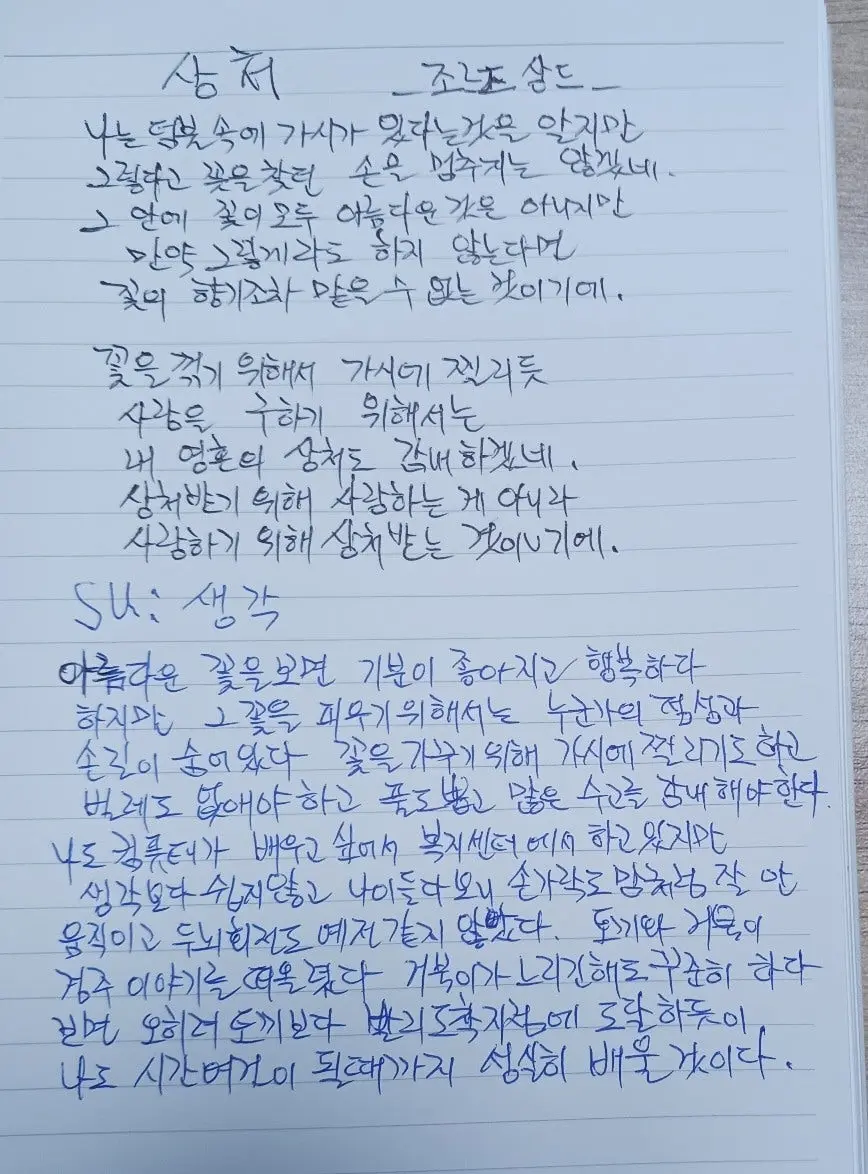 상처 _조르쥬 상드_
나는 덤불 속에 가시가 있다는것을 알지만
그렇다고 꽃을 찾던 손을 멈추지는 않겠네.
그 안에 꽃이 모두 아름다운 것은 아니지만
만약 그렇게라도 하지 않는다면
꽃의 향기조차 맡을 수 없는 것이기에.
꽃을 꺾기 위해서 가시에 찔리듯
사랑을 구하기 위해서는
내 영혼의 상처도 감내하겠네.
상처받기 위해 사랑하는 게 아니라
사랑하기 위해 상처받는 것이기에.
SU: 생각
아름다운 꽃을보면 기분이 좋아지고 행복하다
하지만 그 꽃을 피우기위해서는 누군가의 정성과
손길이 숨어있다 꽃을가꾸기위해 가시에 찔리기도하고
벌레도 없애야하고 풀도뽑고 많은 수고를 감내해야한다.
나도 컴퓨터가 배우고싶어서 복지센터에서 하고있지만
생각보다 쉽지않고 나이들다보니 손가락도 맘처럼 잘 안
움직이고 두뇌회전도 예전같지 않았다. 토끼와 거북이
경주 이야기를 떠올렸다 거북이가 느리긴해도 꾸준히 하다
보면 오히려 토끼보다 빨리 도착지점에 도달하듯이
나도 시간여건이 될때까지 성실히 배울것이다.